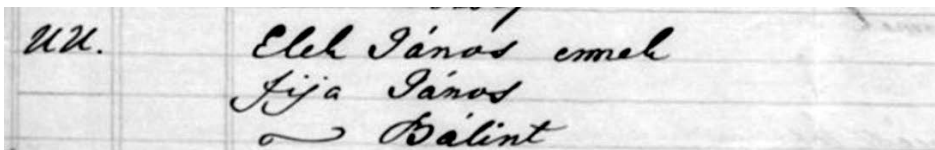 U.U. Elek János ennek
fija János
〃 Bálint